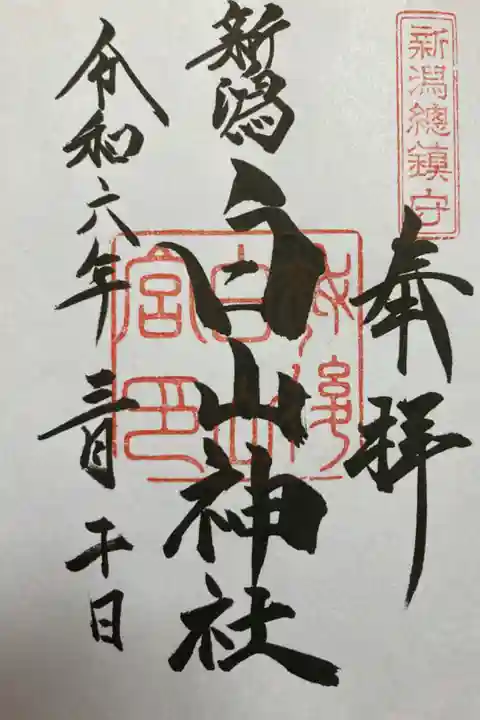 新潟總鎮守
奉拝
新潟白山神社
越後
白山
宮印
令和六年三月二十日